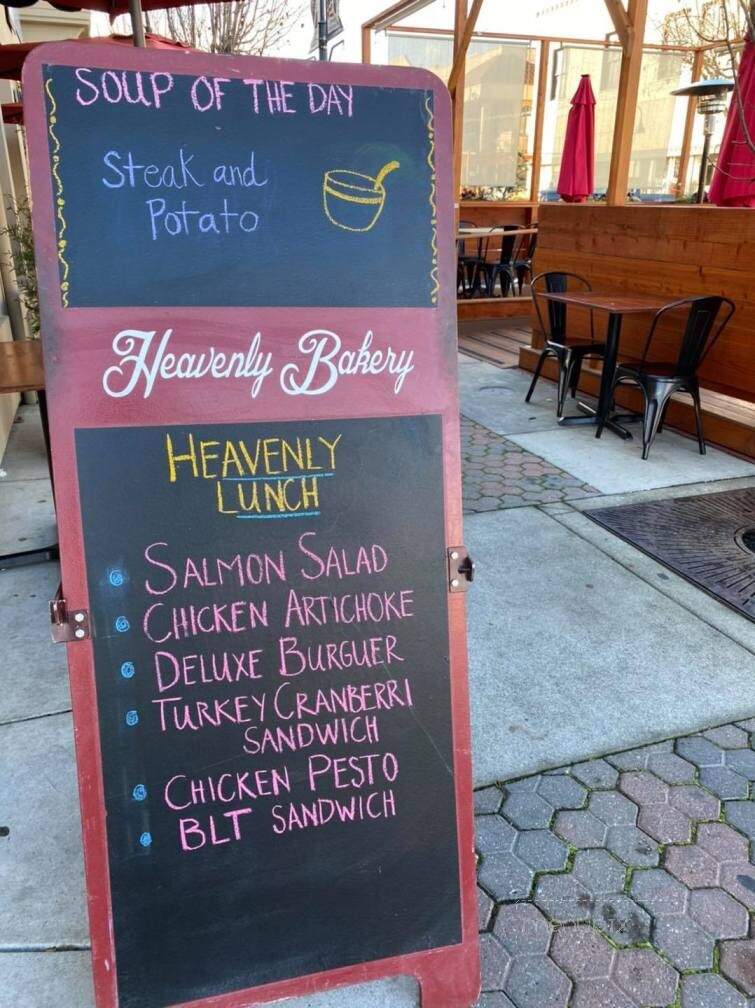 SOUP OF THE DAY
Steak and
Potato
Heavenly Bakery
HEAVENLY
LUNCH
SALMON SALAD
CHICKEN ARTICHOKE
DELUXE BURGUER
TURKEY CRANBERRI
SANDWICH
CHICKEN PESTO
BLT SANDWICH